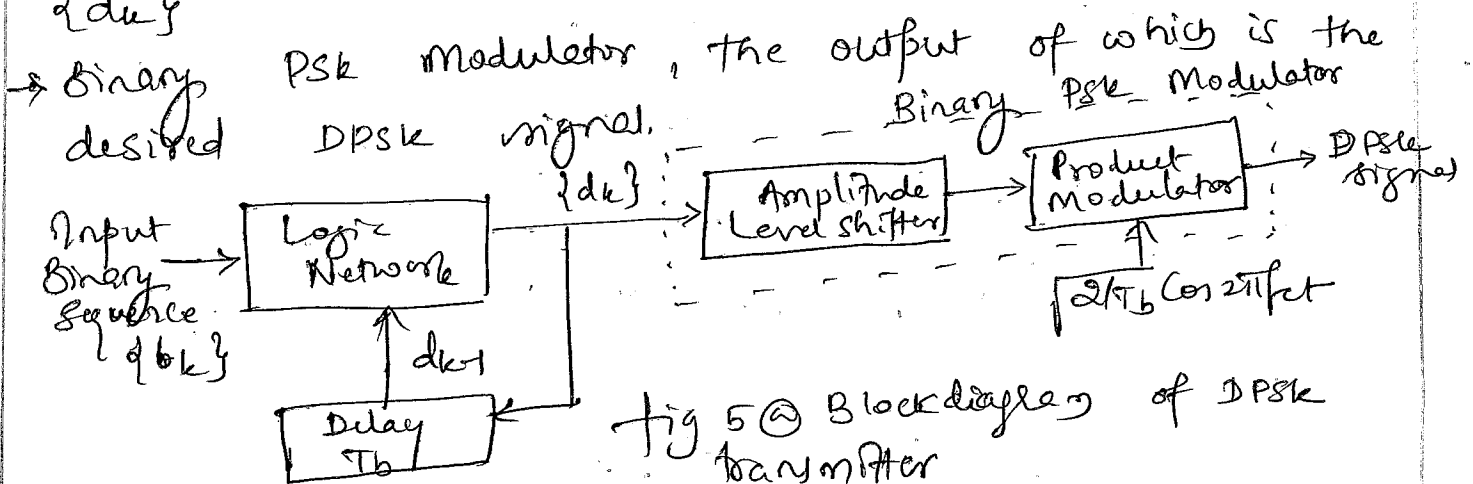 {dk}
→ Binary PSK Modulator, the output of which is the
desired DPSK signal.
Binary PSK Modulator
Input
Binary
Sequence
{bk}
Logic
Network
{dk}
Amplitude
Level shifter
Product
Modulator
DPSK
signal
√2/Tb Cos 2πfct
dk-1
Delay
Tb
fig 5 (a) Block diagram of DPSK
transmitter